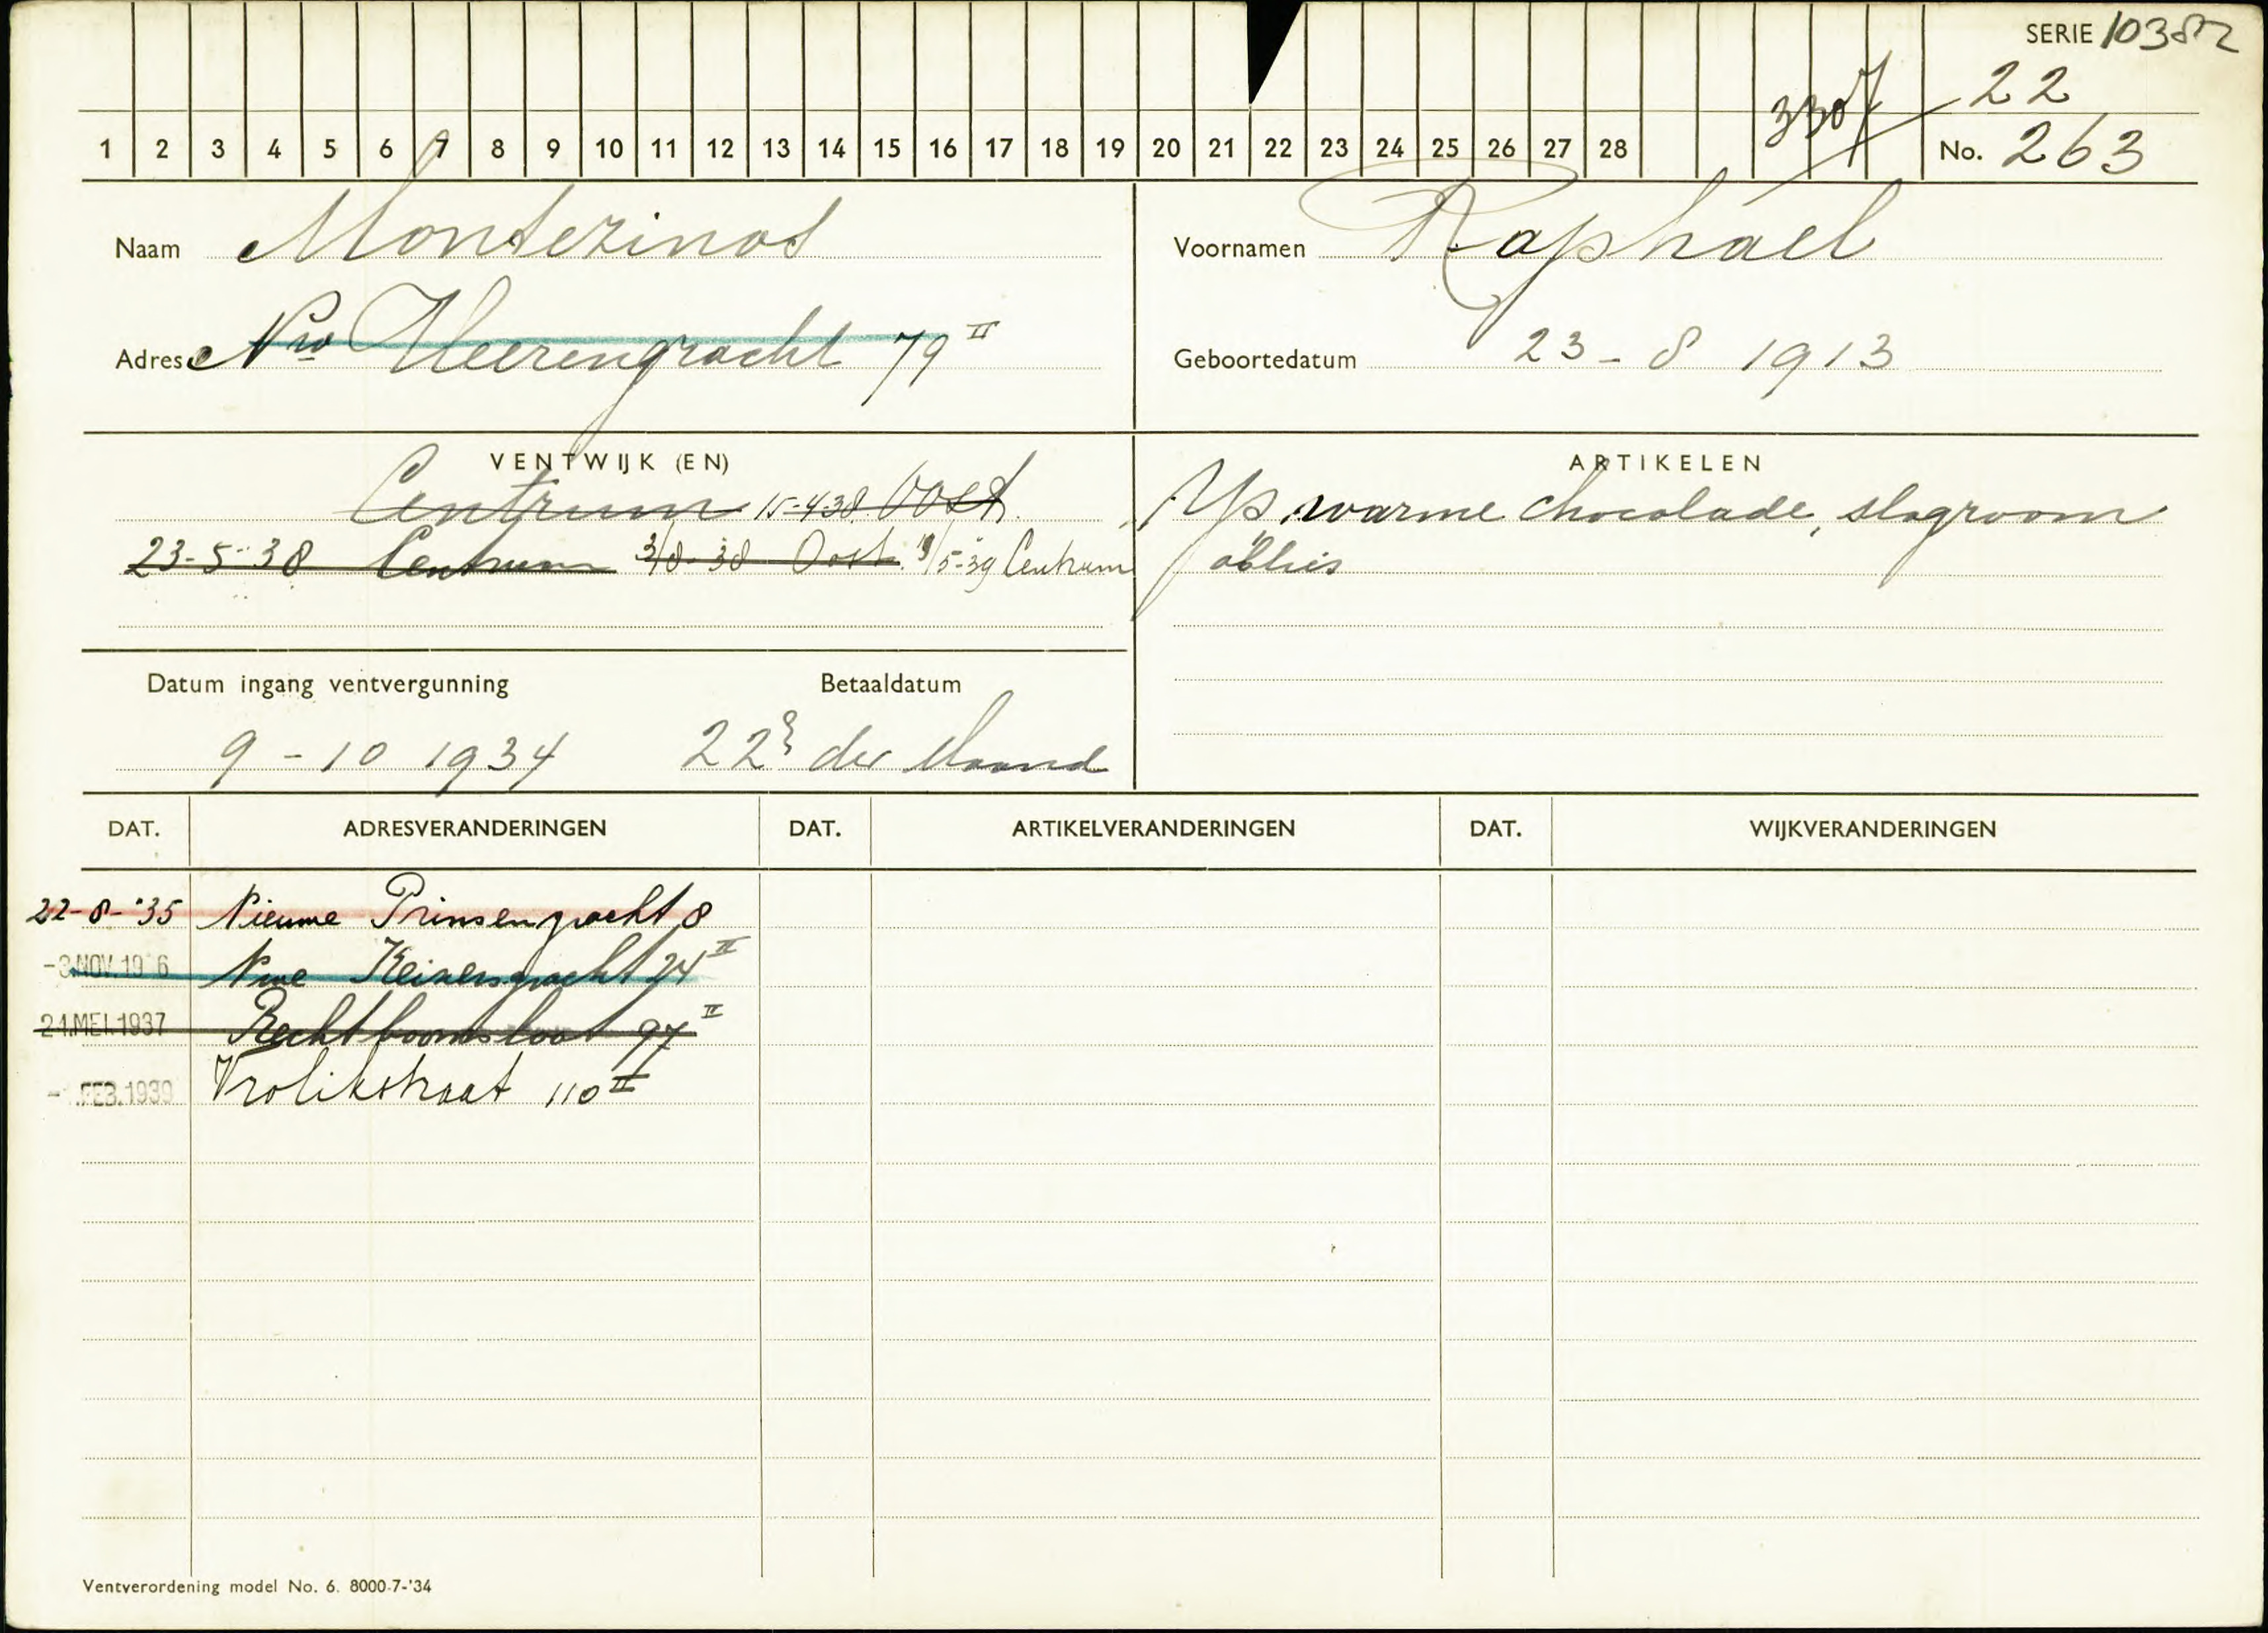 SERIE 10382
22
3307
1 2 3 4 5 6 7 8 9 10 11 12 13 14 15 16 17 18 19 20 21 22 23 24 25 26 27 28 No. 263
Naam Montezinos
Voornamen Raphaël
Adres Nw Heerengracht 79 II
Geboortedatum 23-8 1913
VENTWIJK (EN)
Centrum 15-4 38 Oost.
23-5-38 Centrum 3/8-38 Oost. 5-39 Centrum
ARTIKELEN
Ys, warme chocolade, slagroom
oblies
Datum ingang ventvergunning Betaaldatum
9-10 1934 22e der Maand
DAT. ADRESVERANDERINGEN DAT. ARTIKELVERANDERINGEN DAT. WIJKVERANDERINGEN
22-8-'35 Nieuwe Prinsengracht 8
-3 NOV. 1936 Nwe Keizersgracht 24 II
24 MEI 1937 Rechtboomsloot 97 II
FEB. 1939 Vrolikstraat 110 II
Ventverordening model No. 6. 8000-7-'34